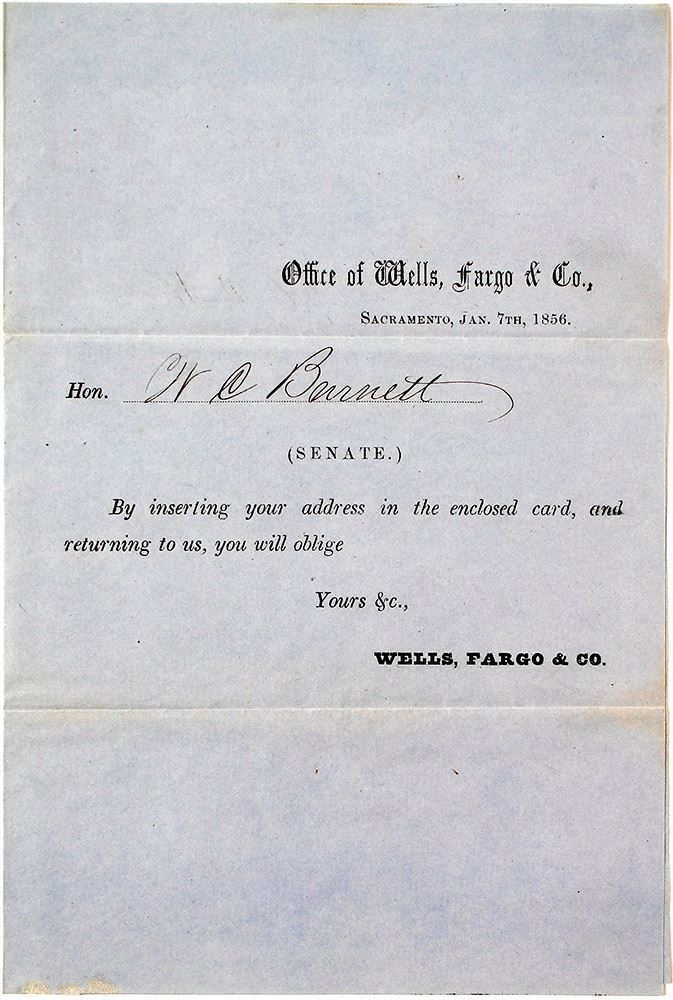 Office of Wells, Fargo & Co.,
Sacramento, Jan. 7th, 1856.
Hon. W C Burnett
(SENATE.)
By inserting your address in the enclosed card, and
returning to us, you will oblige
Yours &c.,
WELLS, FARGO & CO.